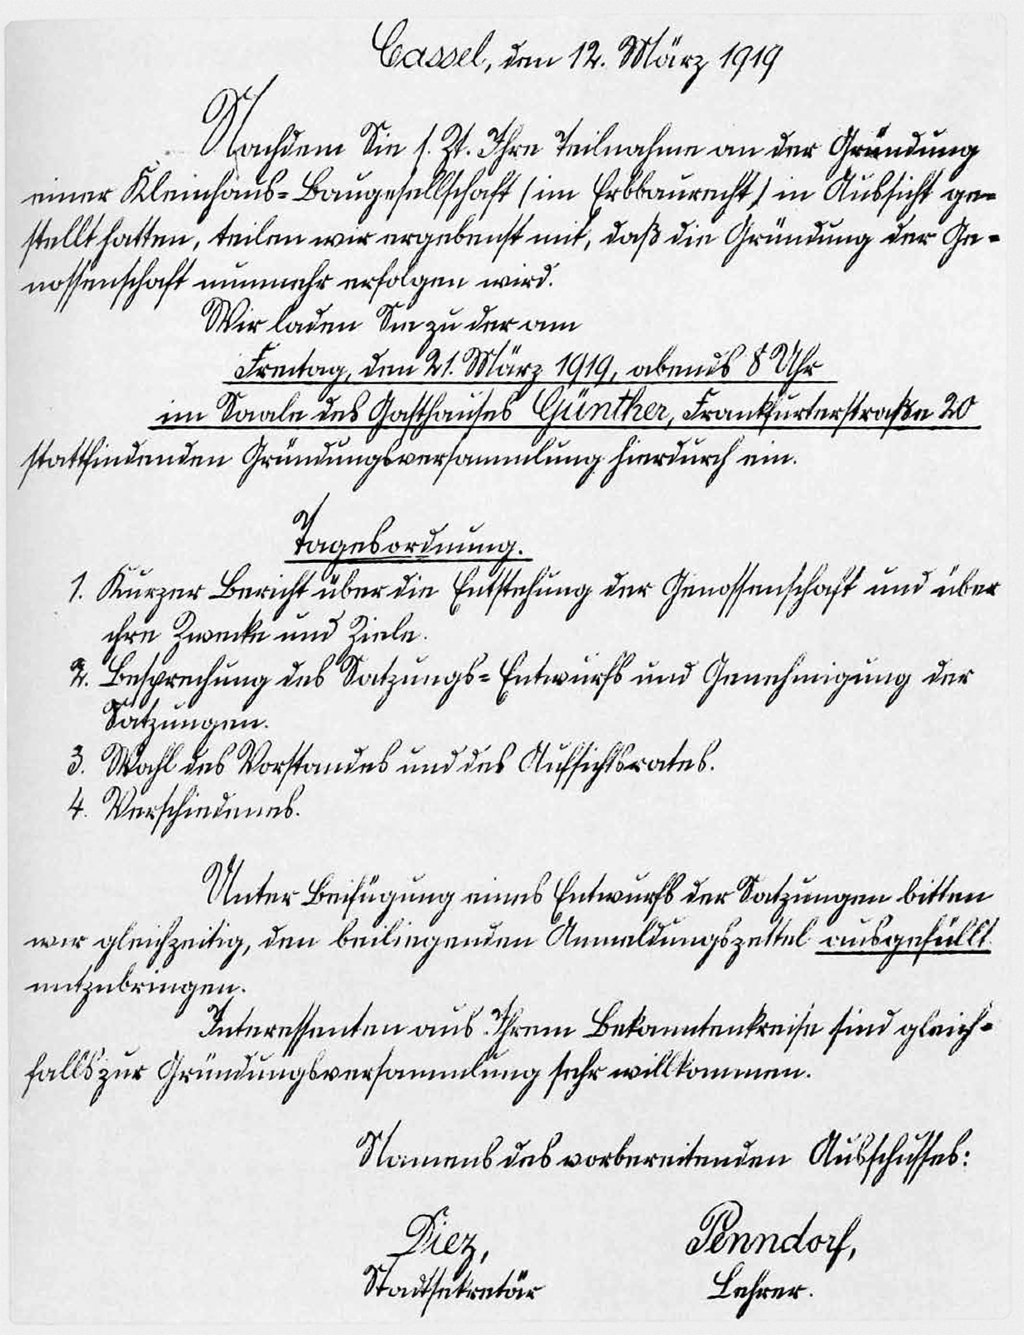 Cassel, den 12. März 1919
Nachdem Sie s. Zt. Ihre Teilnahme an der Gründung
einer Kleinhaus-Baugesellschaft (im Erbbaurecht) in Aussicht ge-
stellt hatten, teilen wir ergebenst mit, daß die Gründung der Ge-
nossenschaft nunmehr erfolgen wird.
Wir laden Sie zu der am
Freitag, den 21. März 1919, abends 8 Uhr
im Saale des Gasthauses Günther, Frankfurterstraße 20
stattfindenden Gründungsversammlung hierdurch ein.
Tagesordnung.
1. Kurzer Bericht über die Entstehung der Genossenschaft und über
ihre Zwecke und Ziele.
2. Besprechung des Satzungs-Entwurfs und Genehmigung der
Satzungen.
3. Wahl des Vorstandes und des Aufsichtsrates.
4. Verschiedenes.
Unter Beifügung eines Entwurfs der Satzungen bitten
wir gleichzeitig, den beiliegenden Anmeldungszettel ausgefüllt
mitzubringen.
Interessenten aus Ihrem Bekanntenkreise sind gleich-
falls zur Gründungsversammlung sehr willkommen.
Namens des vorbereitenden Ausschusses:
Diez, Penndorf,
Stadtsekretär Lehrer.